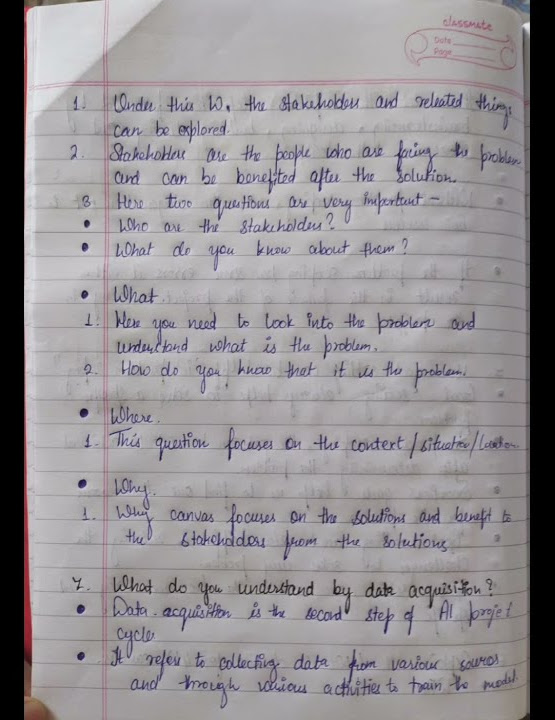 classmate
Date
Page
1. Under this W, the stakeholders and releated things
can be explored.
2. Stakeholders are the people who are facing the problem
and can be benefited after the solution.
3. Here two questions are very important -
• Who are the stakeholders?
• What do you know about them?
• What.
1. Here you need to look into the problem and
understand what is the problem.
2. How do you know that it is the problem.
• Where.
1. This question focuses on the context / situation / location
• Why.
1. Why canvas focuses on the solutions and benefit to
the stakeholders from the solutions
7. What do you understand by data acquisition?
• Data acquisition is the second step of AI projet
cycle
• It refers to collecting data from various sources
and through various activities to train the model.